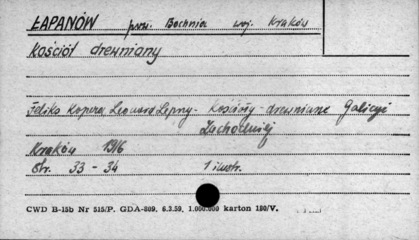 ŁAPANÓW pow. Bochnia woj. Kraków
kościół drewniany
Feliks Kopera, Leonard Lepszy - Kościoły - drewniane Galicyi
Zachodniej
Kraków 1916
Str. 33 - 34 1 ilustr.
CWD B-15b Nr 515/P. GDA-809. 6.3.59. 1.000.000 karton 180/V.